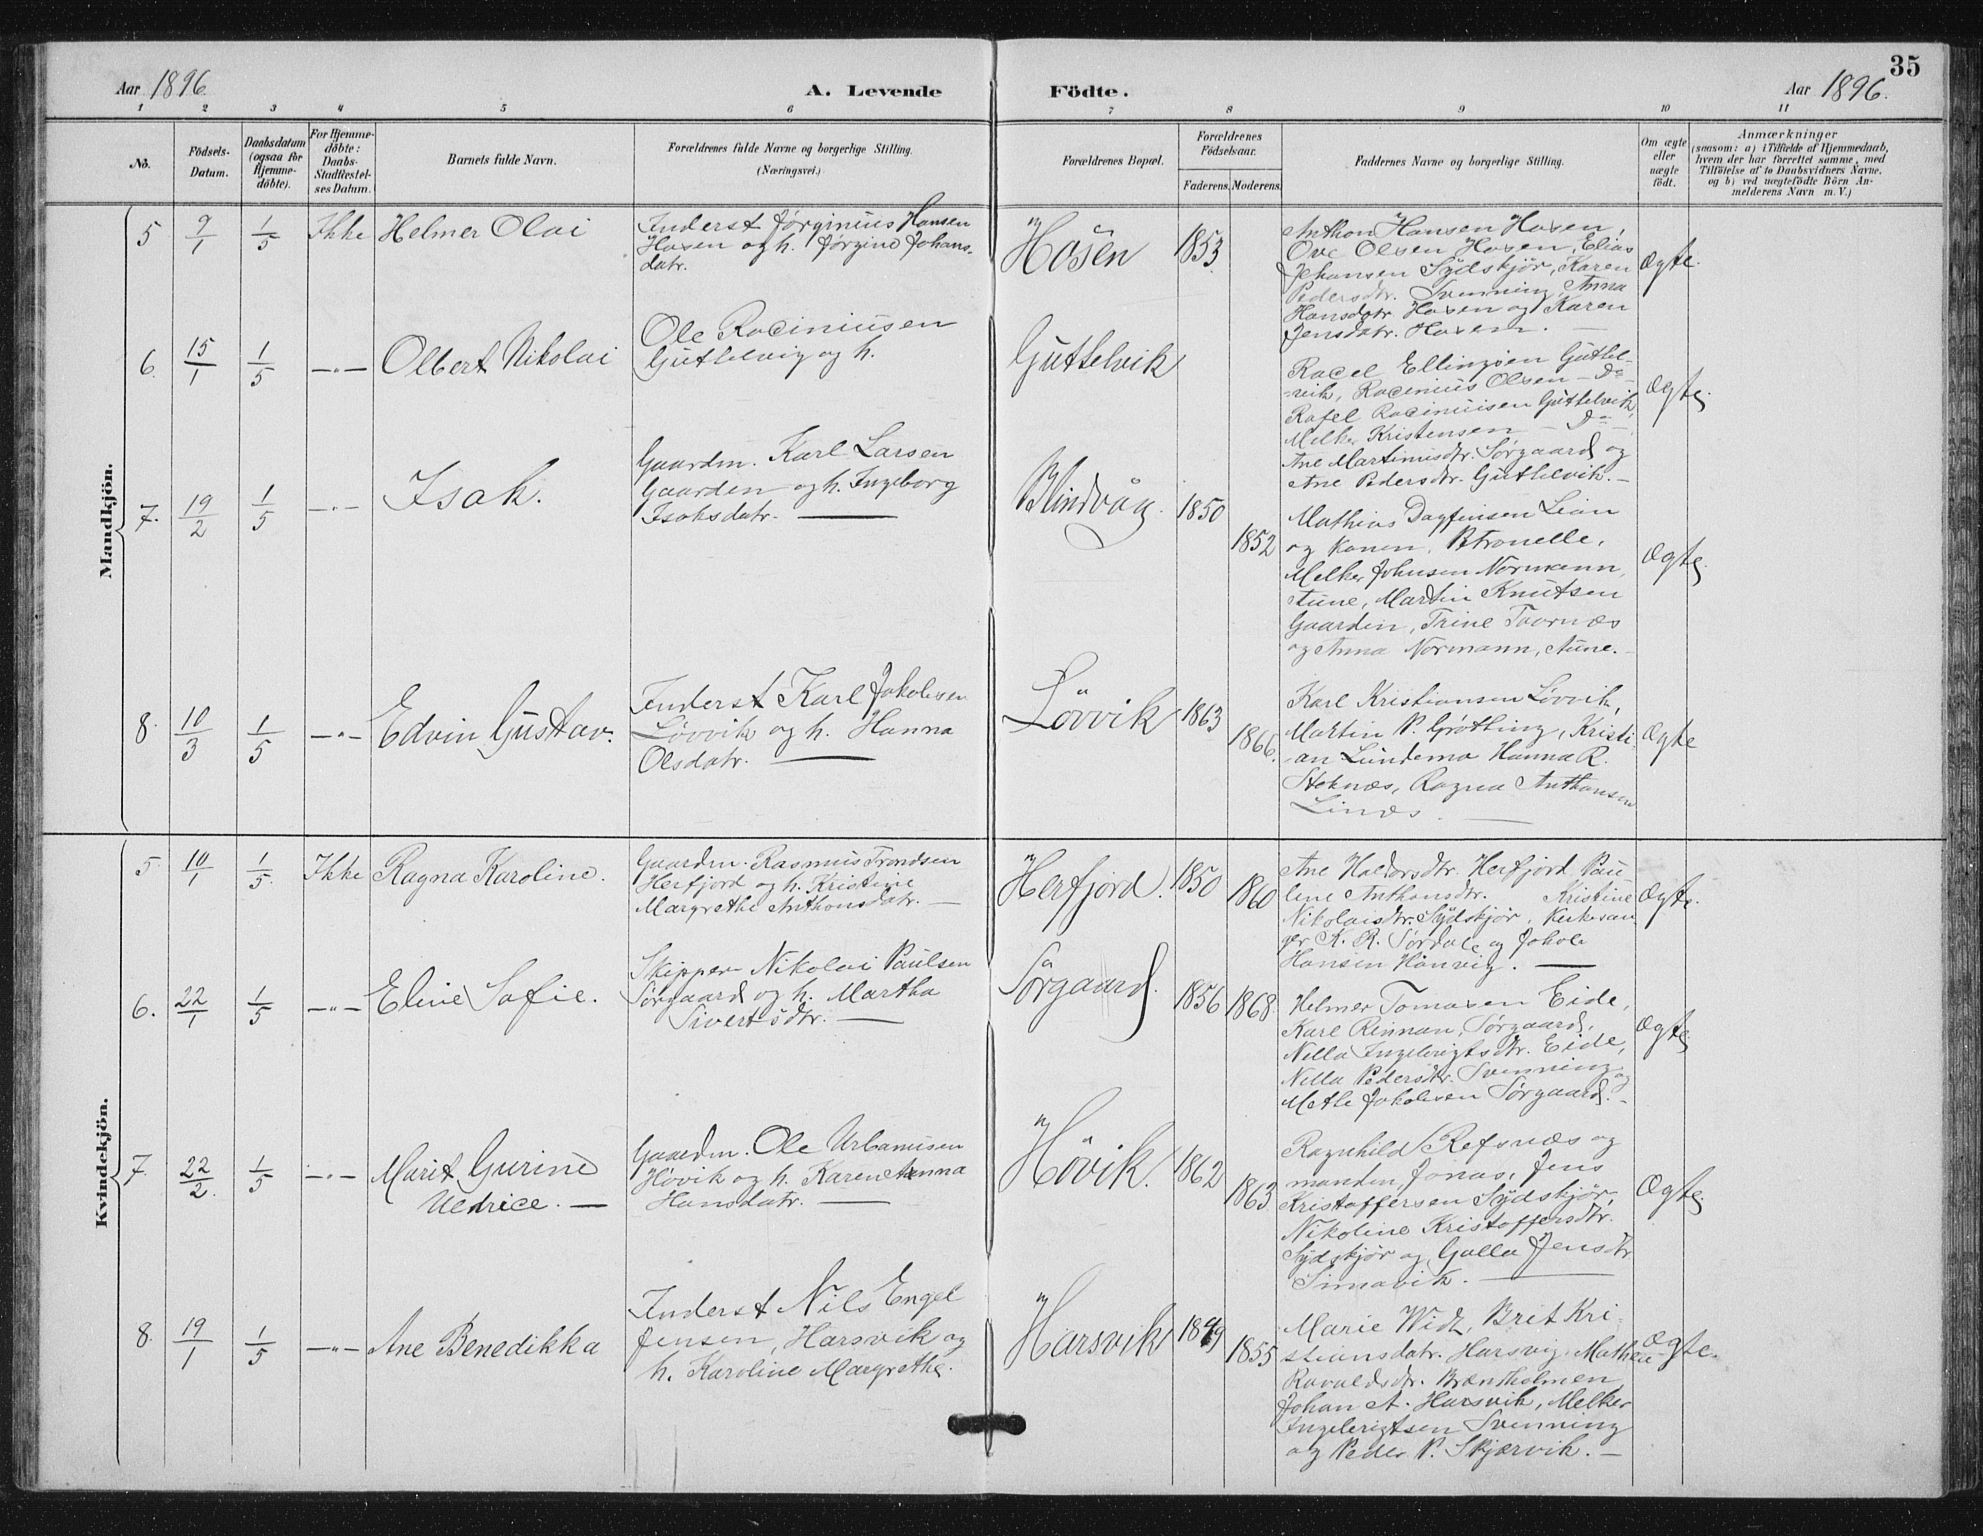 35
Aar 1896. A. Levende Födte. Aar 1896.
1 2 3 4 5 6 7 8 9 10 11
No.
Födsels-
Datum.
Daabsdatum
(ogsaa for
Hjemme-
döbte).
For Hjemme-
döbte:
Daabs-
Stadfestel-
ses Datum.
Barnets fulde Navn.
Forældrenes fulde Navne og borgerlige Stilling.
(Næringsvei.)
Forældrenes Bopæl.
Forældrenes
Födselsaar.
Faderens. Moderens.
Faddernes Navne og borgerlige Stilling.
Om ægte
eller
uægte
födt.
Anmærkninger
(saasom: a) i Tilfælde af Hjemmedaab,
hvem der har forrettet samme, med
Tilföielse af to Daabsvidners Navne.
og b) ved uægtefödte Börn An-
melderens Navn m. V.)
Mandkjön.
5 9/1 1/5 Ikke Helmer Olai
Inderst Jørginius Hansen
Hosen og h. Jørgine Johans-
datr.
Hosen 1853.
Anthon Hansen Hosen,
Ove Olsen Hosen, Elias
Johansen Sydskjør, Karen
Pedersdtr. Svenning, Anna
Hansdatr Hosen og Karen
Jensdatr. Hosen. —
Ægte.
6. 15/1 1/5 —"— Olbert Nikolai
Ole Raciniusen
Guttelvig og h.
Guttelvik
Racel Ellingsen Guttel-
vik, Racinius Olsen — Do —
Rafel Raciniusen Guttelvik,
Melker Kristensen — Do —
Ane Martinusdtr. Sørgaard og
Ane Pedersdtr. Guttelvik. —
Ægte.
7. 19/2 1/5 —"— Isak.
Gaardm. Karl Larsen
Gaarden og h. Ingeborg
Isaksdatr. —
Blindvåg. 1850 1852
Mathias Dagfinsen Lian
og konen, Petronelle,
Melker Johnsen Normann,
Aune, Martin Knutsen
Gaarden, Trine Taarnæs
og Anna Normann, Aune. —
Ægte.
8. 10/3 1/5 —"— Edvin Gustav.
Inderst Karl Jakobsen
Løvvik og h. Hanna
Olsdatr. —
Lövvik 1863 1866.
Karl Kristiansen Løvvik,
Martin P. Grøtting, Kristi-
an Lundemo Hanna R.
Stoknæs, Ragna Anthonsen
Linæs. —
Ægte
Kvindekjön.
5. 10/1 1/5. Ikke Ragna Karoline.
Gaardm. Rasmus Trondsen
Herfjord og h. Kristine
Margrethe Anthonsdatr. —
Herfjord. 1850 1860
Ane Haldorsdtr. Herfjord Pau-
line Anthonsdtr. Kristine
Nikolaisdtr. Sydskjør, Kirkesan-
ger K. R. Sørdale og Jakob
Hansen Hånvig. —
Ægte.
6. 22/1 1/5 —"— Eline Sofie.
Skipper Nikolai Paulsen
Sørgaard og h. Martha
Sivertsdtr. —
Sørgaard. 1856 1868.
Helmer Tomasen Eide,
Karl Rinnan, Sørgaard,
Nella Ingebrigtsdtr. Eide,
Nella Pedersdtr. Svenning og
Mette Jakobsen Sørgaard. —
Ægte.
7. 22/2. 1/5 —"— Marit Gurine
Uldrice. —
Gaardm. Ole Urbanusen
Høvik og h. Karen Anna
Hansdatr. —
Hövik. 1862 1863
Ragnhild Refsnæs og
manden, Jonas, Jens
Kristoffersen Sydskjør,
Nikoline Kristoffersdtr.
Sydskjør og Golla Jensdtr
Simavik. —
Ægte.
8. 19/1 1/5 —"— Ane Benedikka
Inderst Nils Engel
Jensen, Harsvik og
h. Karoline Margrethe.
Harsvik 1849 1855
Marie Wid, Brit Kri-
stiansdatr. Harsvig, Mathea
Ravaldsdtr. Brandholmen,
Johan A. Harsvik, Melker
Ingebrigtsen Svenning
og Peder P. Skjærvik. —
Ægte.